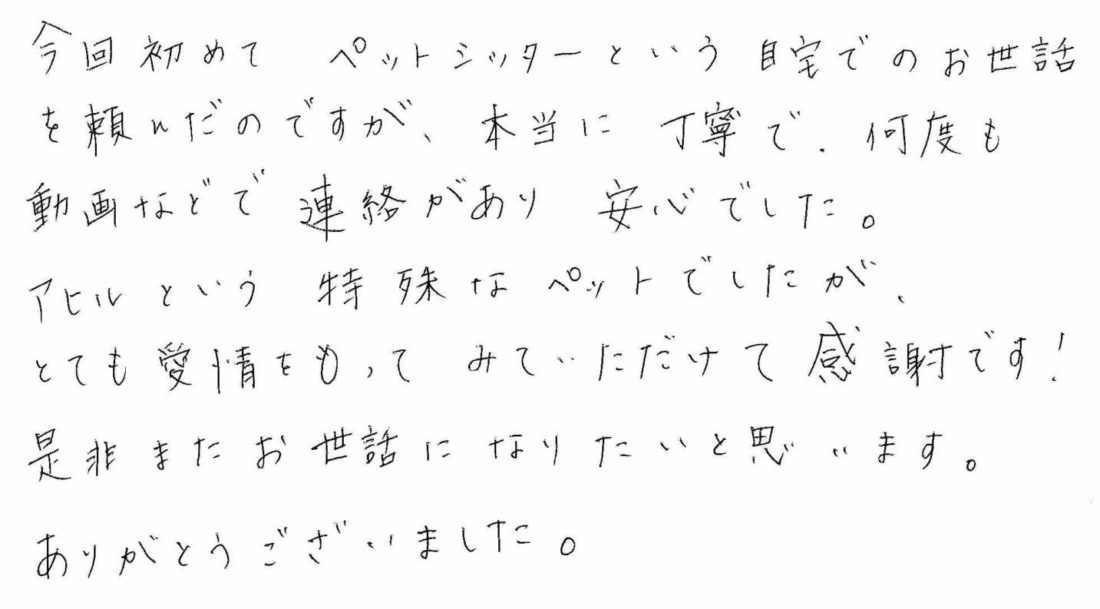 今回初めて ペットシッターという自宅でのお世話
を頼んだのですが、本当に 丁寧で、何度も
動画などで 連絡があり 安心でした。
アヒルという 特殊なペットでしたが、
とても愛情をもって みていただけて感謝です!
是非またお世話になりたいと思います。
ありがとうございました。